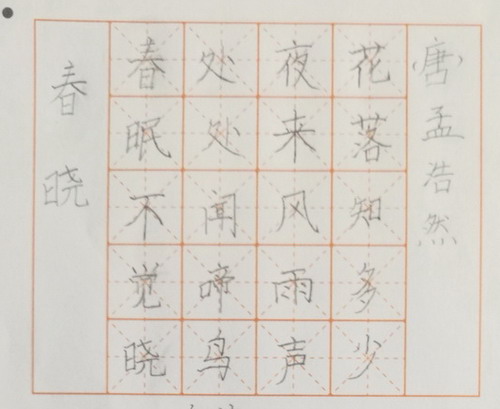 春晓
春眠不觉晓
处处闻啼鸟
夜来风雨声
花落知多少
(唐)孟浩然